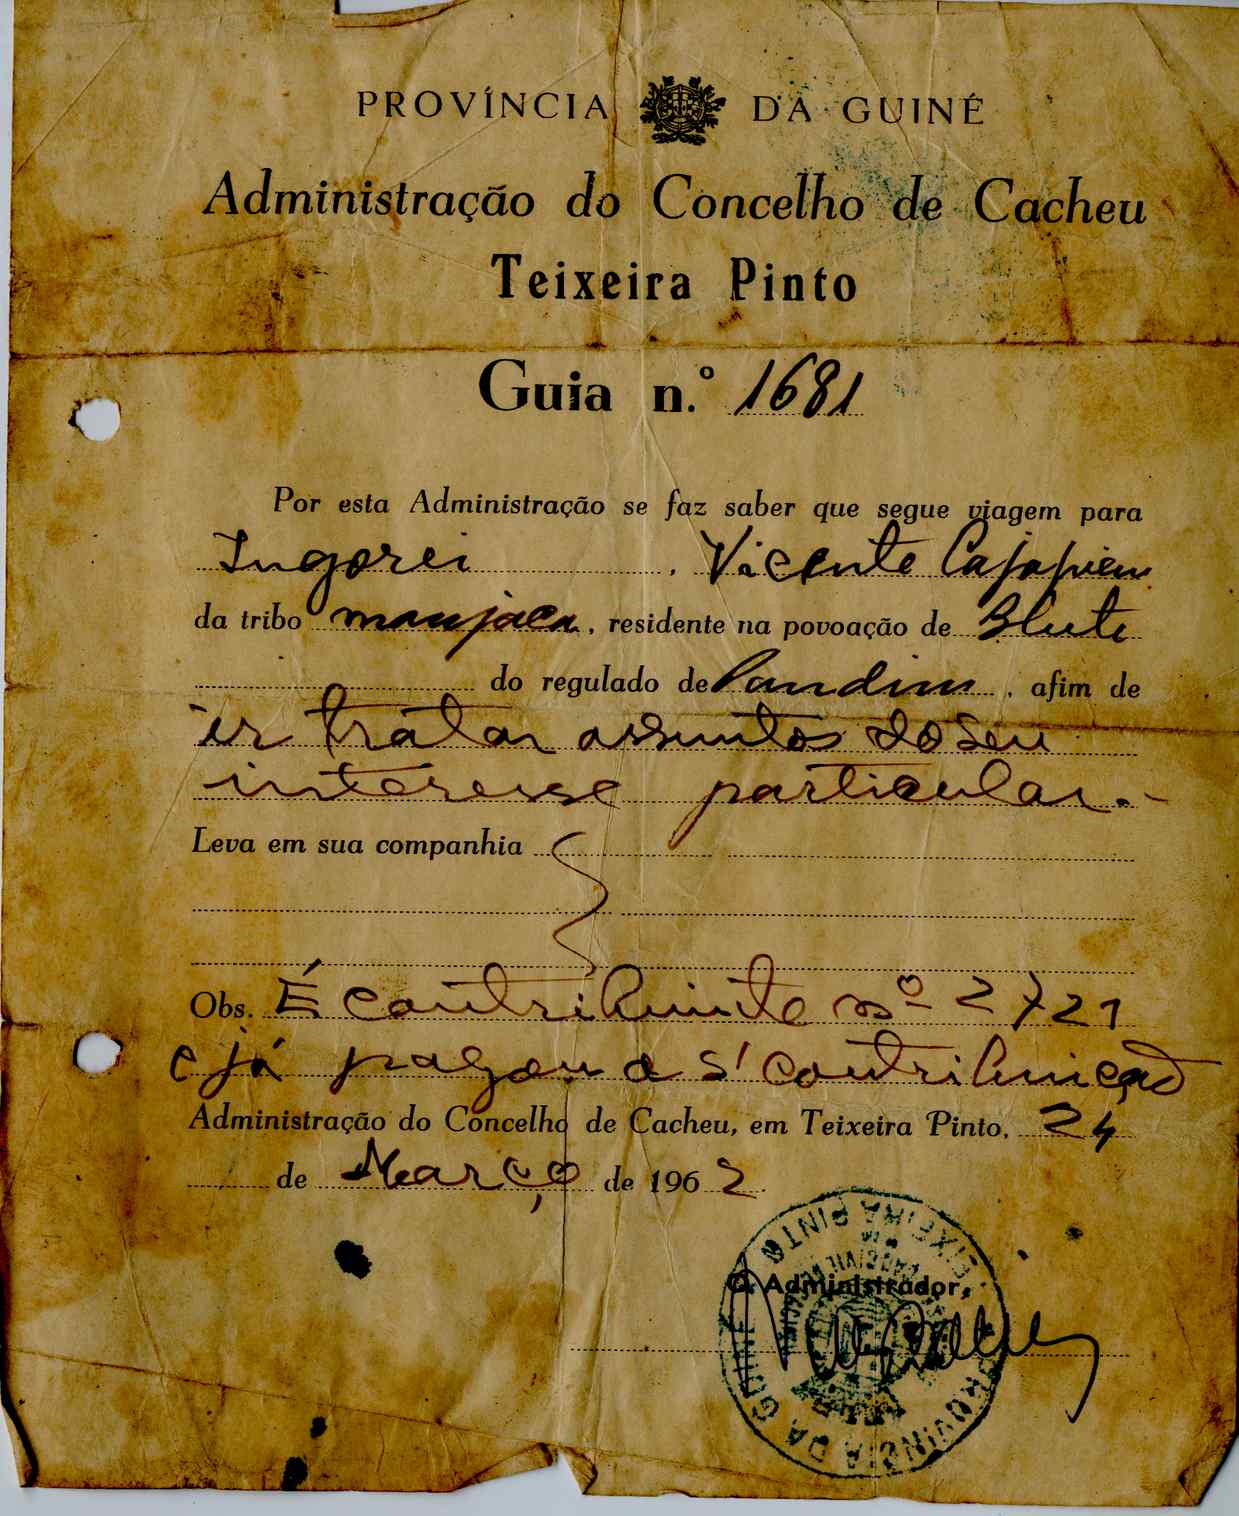 PROVÍNCIA DA GUINÉ
Administração do Concelho de Cacheu
Teixeira Pinto
Guia n.º 1681
Por esta Administração se faz saber que segue viagem para
Ingorei, Vicente
da tribo manjaca, residente na povoação de Blute
do regulado de Pandim, afim de
ir tratar assuntos do seu
interesse particular.-
Leva em sua companhia
Obs. É contribuinte nº 2721
e já pagou a s/ contribuição
Administração do Concelho de Cacheu, em Teixeira Pinto, 24
de Março de 1962
O Administrador,
PROVÍNCIA DA GUINÉ
TEIXEIRA PINTO